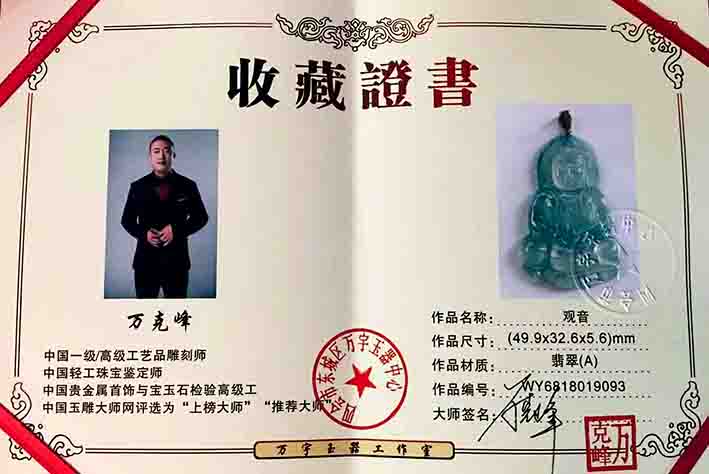 收藏證書
万克峰
中国一级/高级工艺品雕刻师
中国轻工珠宝鉴定师
中国贵金属首饰与宝玉石检验高级工
中国玉雕大师网评选为“上榜大师”“推荐大师”
作品名称： 观音
作品尺寸： (49.9x32.6x5.6)mm
作品材质： 翡翠(A)
作品编号： WY6818019093
大师签名：
四会市东城区万宇玉器中心
万克峰
万宇玉器工作室